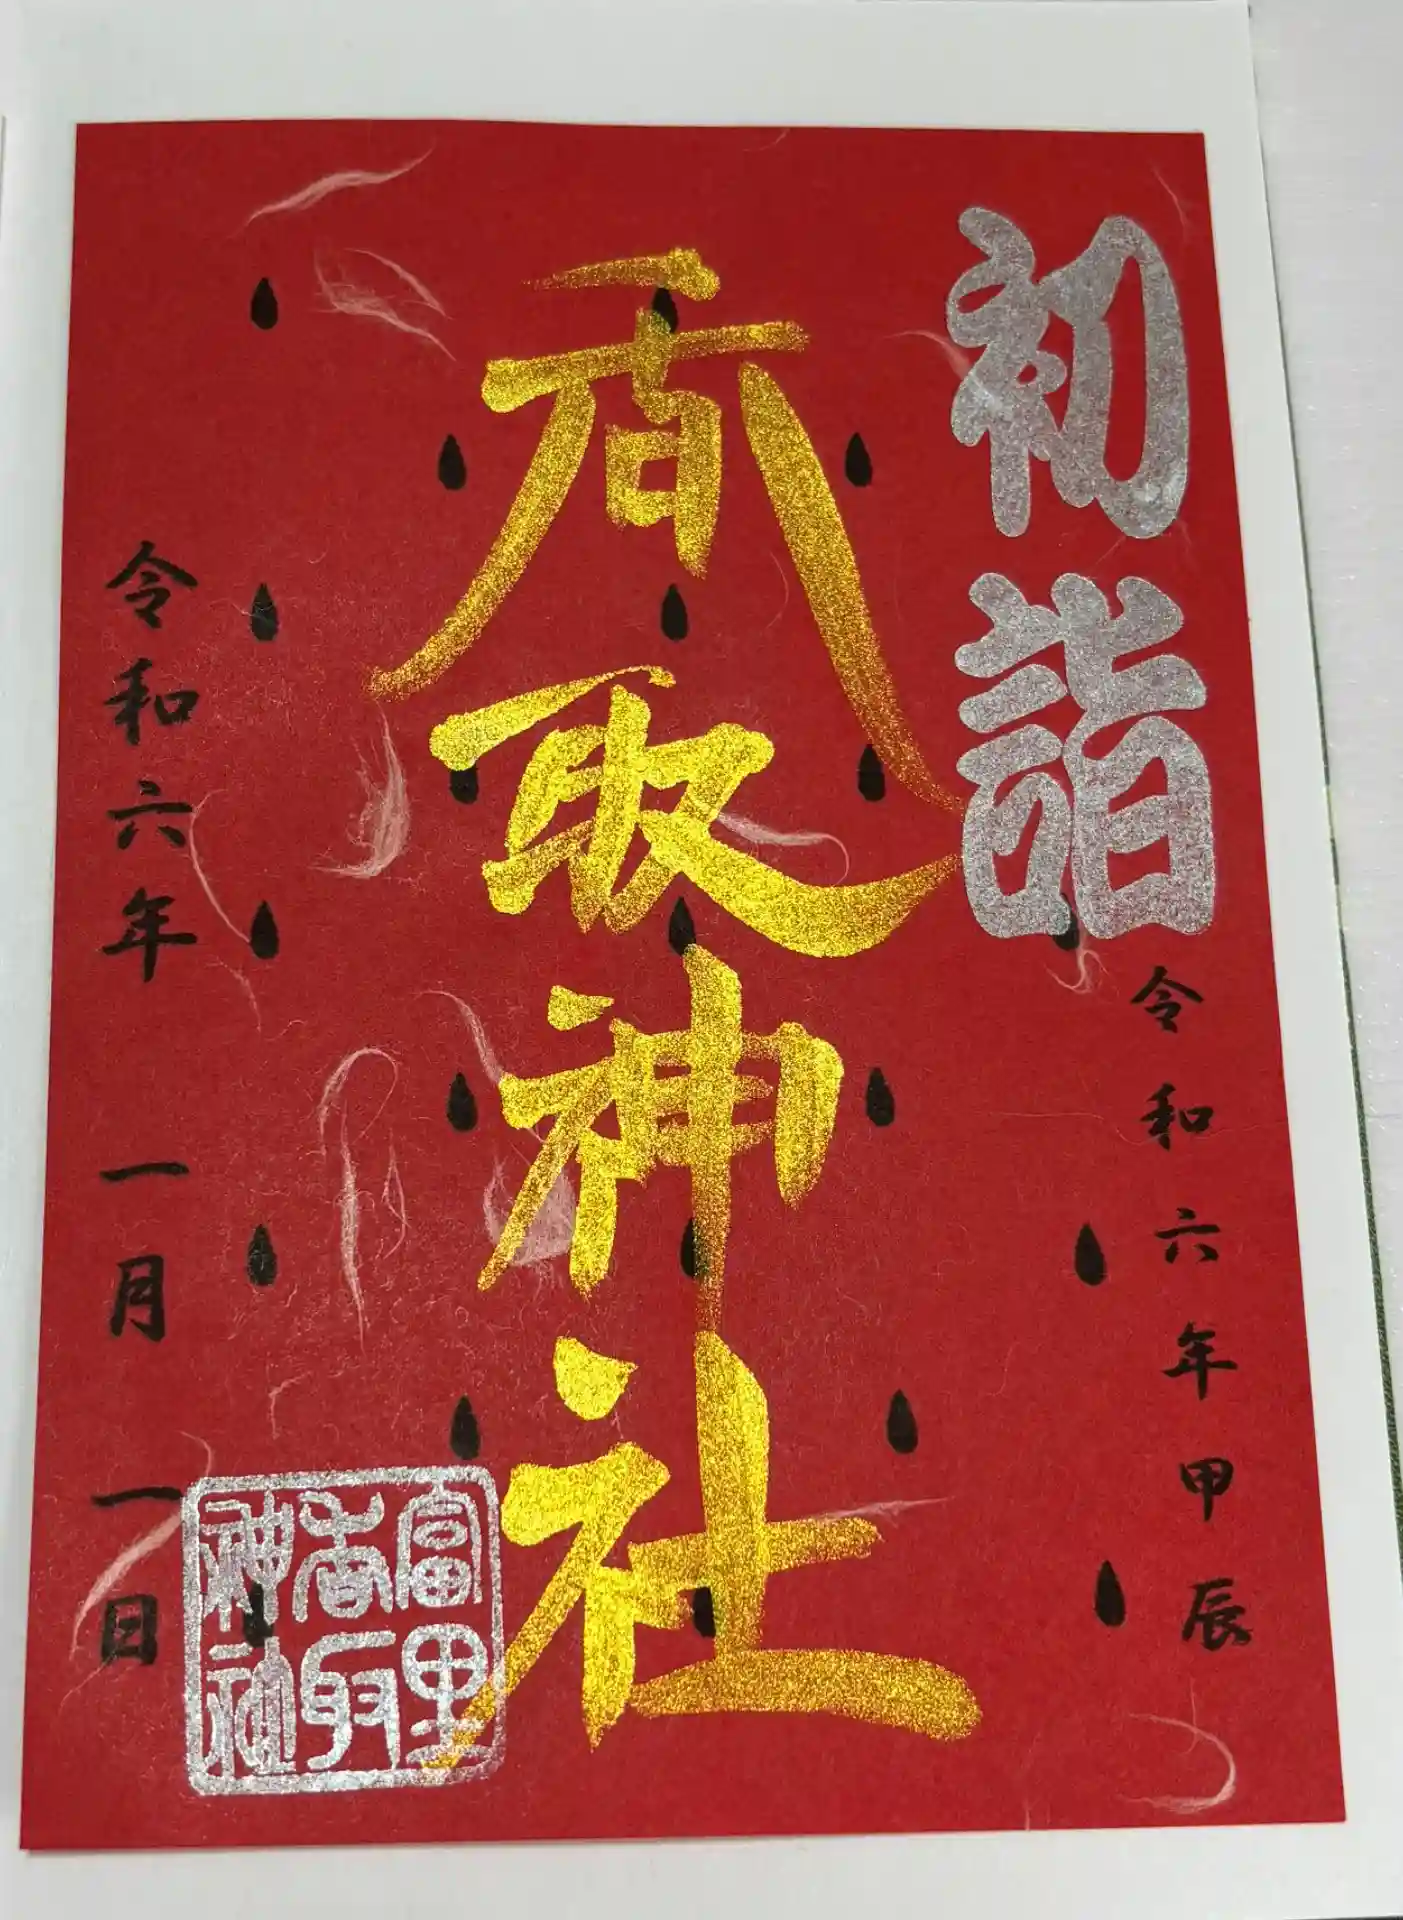 初詣
令和六年甲辰
香取神社
令和六年一月一日
富里
香取
神社